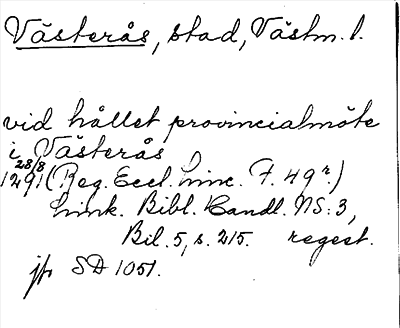 Västerås, stad, Västm. l.
vid hållet provincialmöte
i Västerås
28/8
1291 (Reg. Eccl. Linc. F. 49r.)
Link. Bibl. Handl. NS: 3,
Bil. 5, s. 215. regest.
jfr SD 1051.